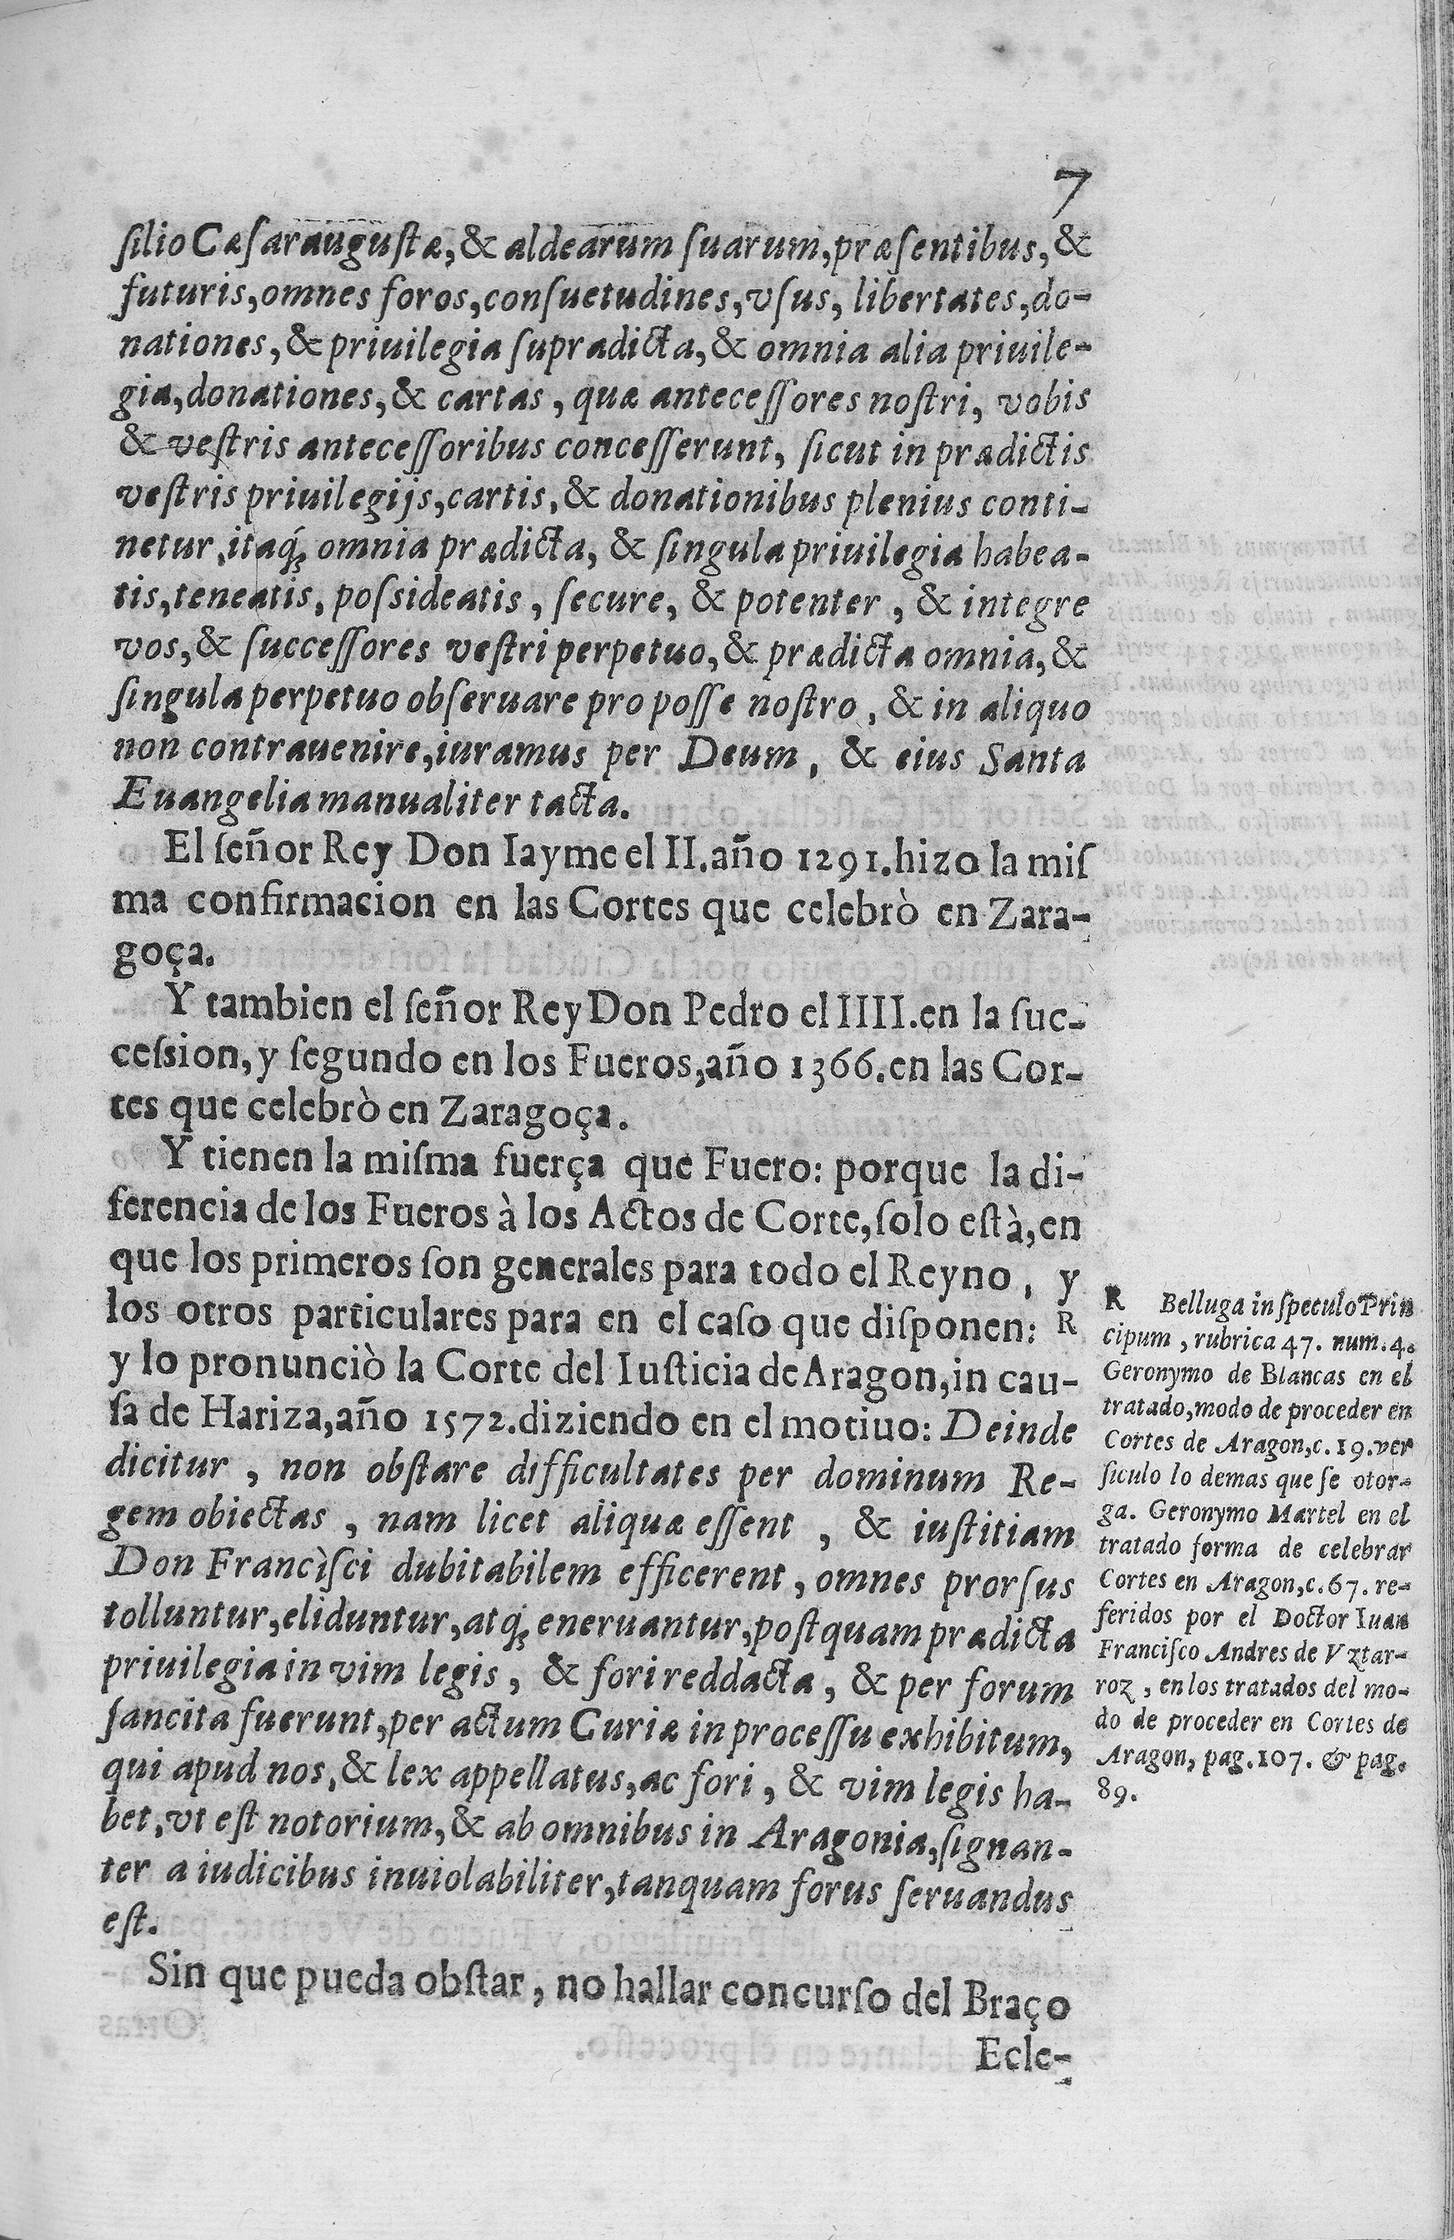 7
ſilio Cæſarauguſtæ, & aldearum ſuarum, præſentibus, &
futuris, omnes foros, conſuetudines, vſus, libertates, do-
nationes, & priuilegia ſupradicta, & omnia alia priuile-
gia, donationes, & cartas, quæ anteceſſores noſtri, vobis
& veſtris anteceſſoribus conceſſerunt, ſicut in prædictis
veſtris priuilegijs, cartis, & donationibus plenius conti-
netur, itaq́; omnia prædicta, & ſingula priuilegia habea-
tis, teneatis, poſsideatis, ſecure, & potenter, & integre
vos, & ſucceſſores veſtri perpetuo, & prædicta omnia, &
ſingula perpetuo obſeruare pro poſſe noſtro, & in aliquo
non contrauenire, iuramus per Deum, & eius Santa
Euangelia manualiter tacta.
El ſeñor Rey Don Iayme el II. año 1291. hizo la miſ
ma confirmacion en las Cortes que celebrò en Zara-
goça.
Y tambien el ſeñor Rey Don Pedro el IIII. en la ſuc-
ceſsion, y ſegundo en los Fueros, año 1366. en las Cor-
tes que celebrò en Zaragoça.
Y tienen la miſma fuerça que Fuero: porque la di-
ferencia de los Fueros à los Actos de Corte, ſolo eſtà, en
que los primeros ſon generales para todo el Reyno, y
los otros particulares para en el caſo que diſponen: R
y lo pronunciò la Corte del Iuſticia de Aragon, in cau-
ſa de Hariza, año 1572. diziendo en el motiuo: Deinde
dicitur, non obſtare difficultates per dominum Re-
gem obiectas, nam licet aliquæ eſſent, & iuſtitiam
Don Franciſci dubitabilem efficerent, omnes prorſus
tolluntur, eliduntur, atq́; eneruantur, poſtquam prædicta
priuilegia in vim legis, & fori reddacta, & per forum
ſancita fuerunt, per actum Curiæ in proceſſu exhibitum,
qui apud nos, & lex appellatus, ac fori, & vim legis ha-
bet, vt eſt notorium, & ab omnibus in Aragonia, ſignan-
ter a iudicibus inuiolabiliter, tanquam forus ſeruandus
eſt.
Sin que pueda obſtar, no hallar concurſo del Braço
Ecle-
R Belluga in ſpeculo Prin
cipum, rubrica 47. num. 4.
Geronymo de Blancas en el
tratado, modo de proceder en
Cortes de Aragon, c. 19. ver
ſiculo lo demas que ſe otor-
ga. Geronymo Martel en el
tratado forma de celebrar
Cortes en Aragon, c. 67. re-
feridos por el Doctor Iuan
Franciſco Andres de Vztar-
roz, en los tratados del mo-
do de proceder en Cortes de
Aragon, pag. 107. & pag.
89.